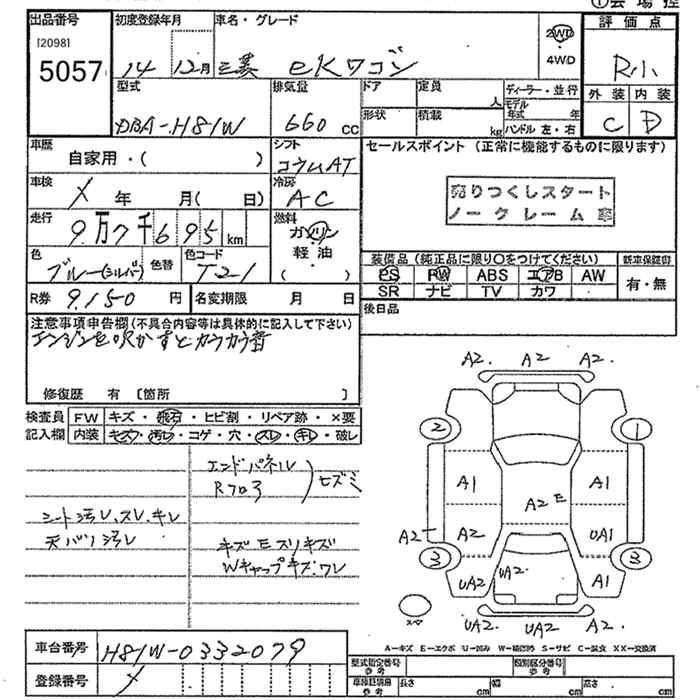 ①会場控
出品番号
[2098]
5057
初度登録年月
14 12月
車名・グレード
三菱 eKワゴン
2WD
・
4WD
評価点
R小
外装 内装
C D
型式
DBA-H81W
排気量
660 cc
ドア
定員
人
形状
積載
kg
ディーラー・並行
モデル年式 年
ハンドル 左・右
車歴
自家用・( )
シフト
コラムAT
車検
X 年 月( 日)
冷房
AC
走行
9万7千695 km
燃料
ガソリン
軽油
( )
色
ブルー(シルバ)
色替
色コード
T21
R券 9,150 円
名変期限 月 日
セールスポイント (正常に機能するものに限ります)
売りつくしスタート
ノークレーム車
装備品(純正品に限り○をつけてください)
新車保証書
PS PW ABS エアB AW
SR ナビ TV カワ
有・無
後日品
注意事項申告欄(不具合内容等は具体的に記入して下さい)
エンジンを吹かすとカラカラ音
修復歴 有 〔箇所 〕
検査員 FW キズ・飛石・ヒビ割・リペア跡・×要
記入欄 内装 キズ・汚レ・コゲ・穴・スレ・キレ・破レ
エンドパネル
Rフロア
ヒズミ
シート汚レ、スレ、キレ
天バリ汚レ
キズ E スリキズ
Wキャップキズ・ワレ
A2. A2 A2.
2 1
A1 A1
A2 E
A2 A2 UA1
3 3
UA2 UA2 A1
スペ
UA2 UA2 A2.
A-キズ E-エクボ U-凹み W-補修跡 S-サビ C-腐食 XX-交換済
車台番号 H81W-0332079
登録番号 X
型式指定番号
参考
類別区分番号
参考
車検証数値
参考
長さ cm
幅 cm
高さ cm